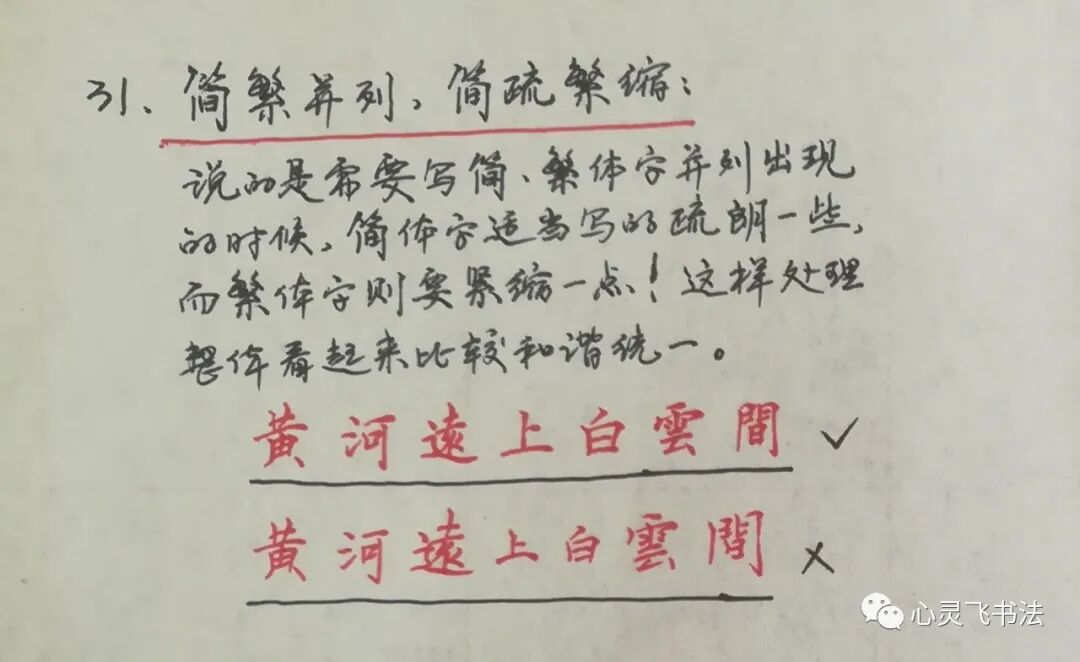 31、简繁并列，简疏繁缩：
说的是需要写简、繁体字并列出现
的时候，简体字适当写的疏朗一些，
而繁体字则要紧缩一点！这样处理
整体看起来比较和谐统一。
黄河遠上白雲間 ✓
黄河遠上白雲間 ×
心灵飞书法